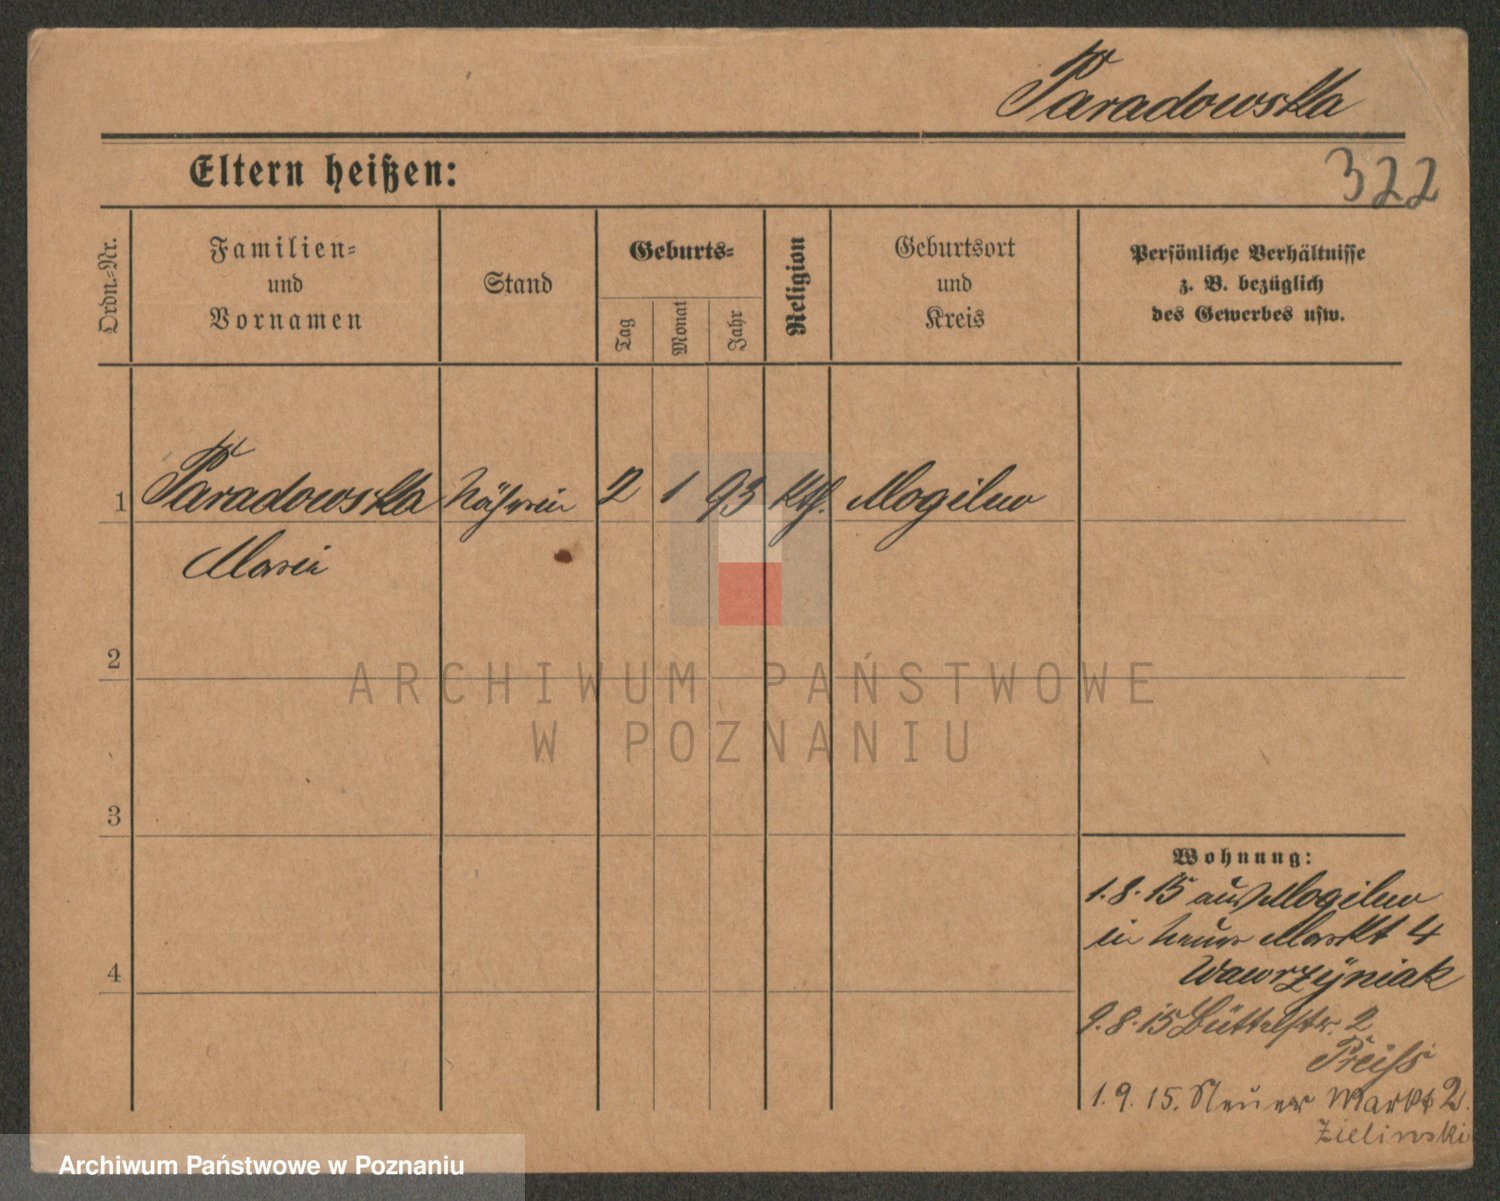 Paradowska
322
Eltern heißen:
Ordn.-Nr.
Familien-
und
Vornamen
Stand
Geburts-
Tag
Monat
Jahr
Religion
Geburtsort
und
Kreis
Persönliche Verhältnisse
z. B. bezüglich
des Gewerbes usw.
1 Paradowska Näherin 2 1 93 kth. Mogilno
Marie
2
3
4
Wohnung:
1.8.15 aus Mogilno
in Neuer Markt 4
Wawrzyniak
9.8.15 Büttelstr. 2
Preiss
1.9.15. Neuer Markt 2.
Zielinski
ARCHIWUM PAŃSTWOWE
W POZNANIU
Archiwum Państwowe w Poznaniu